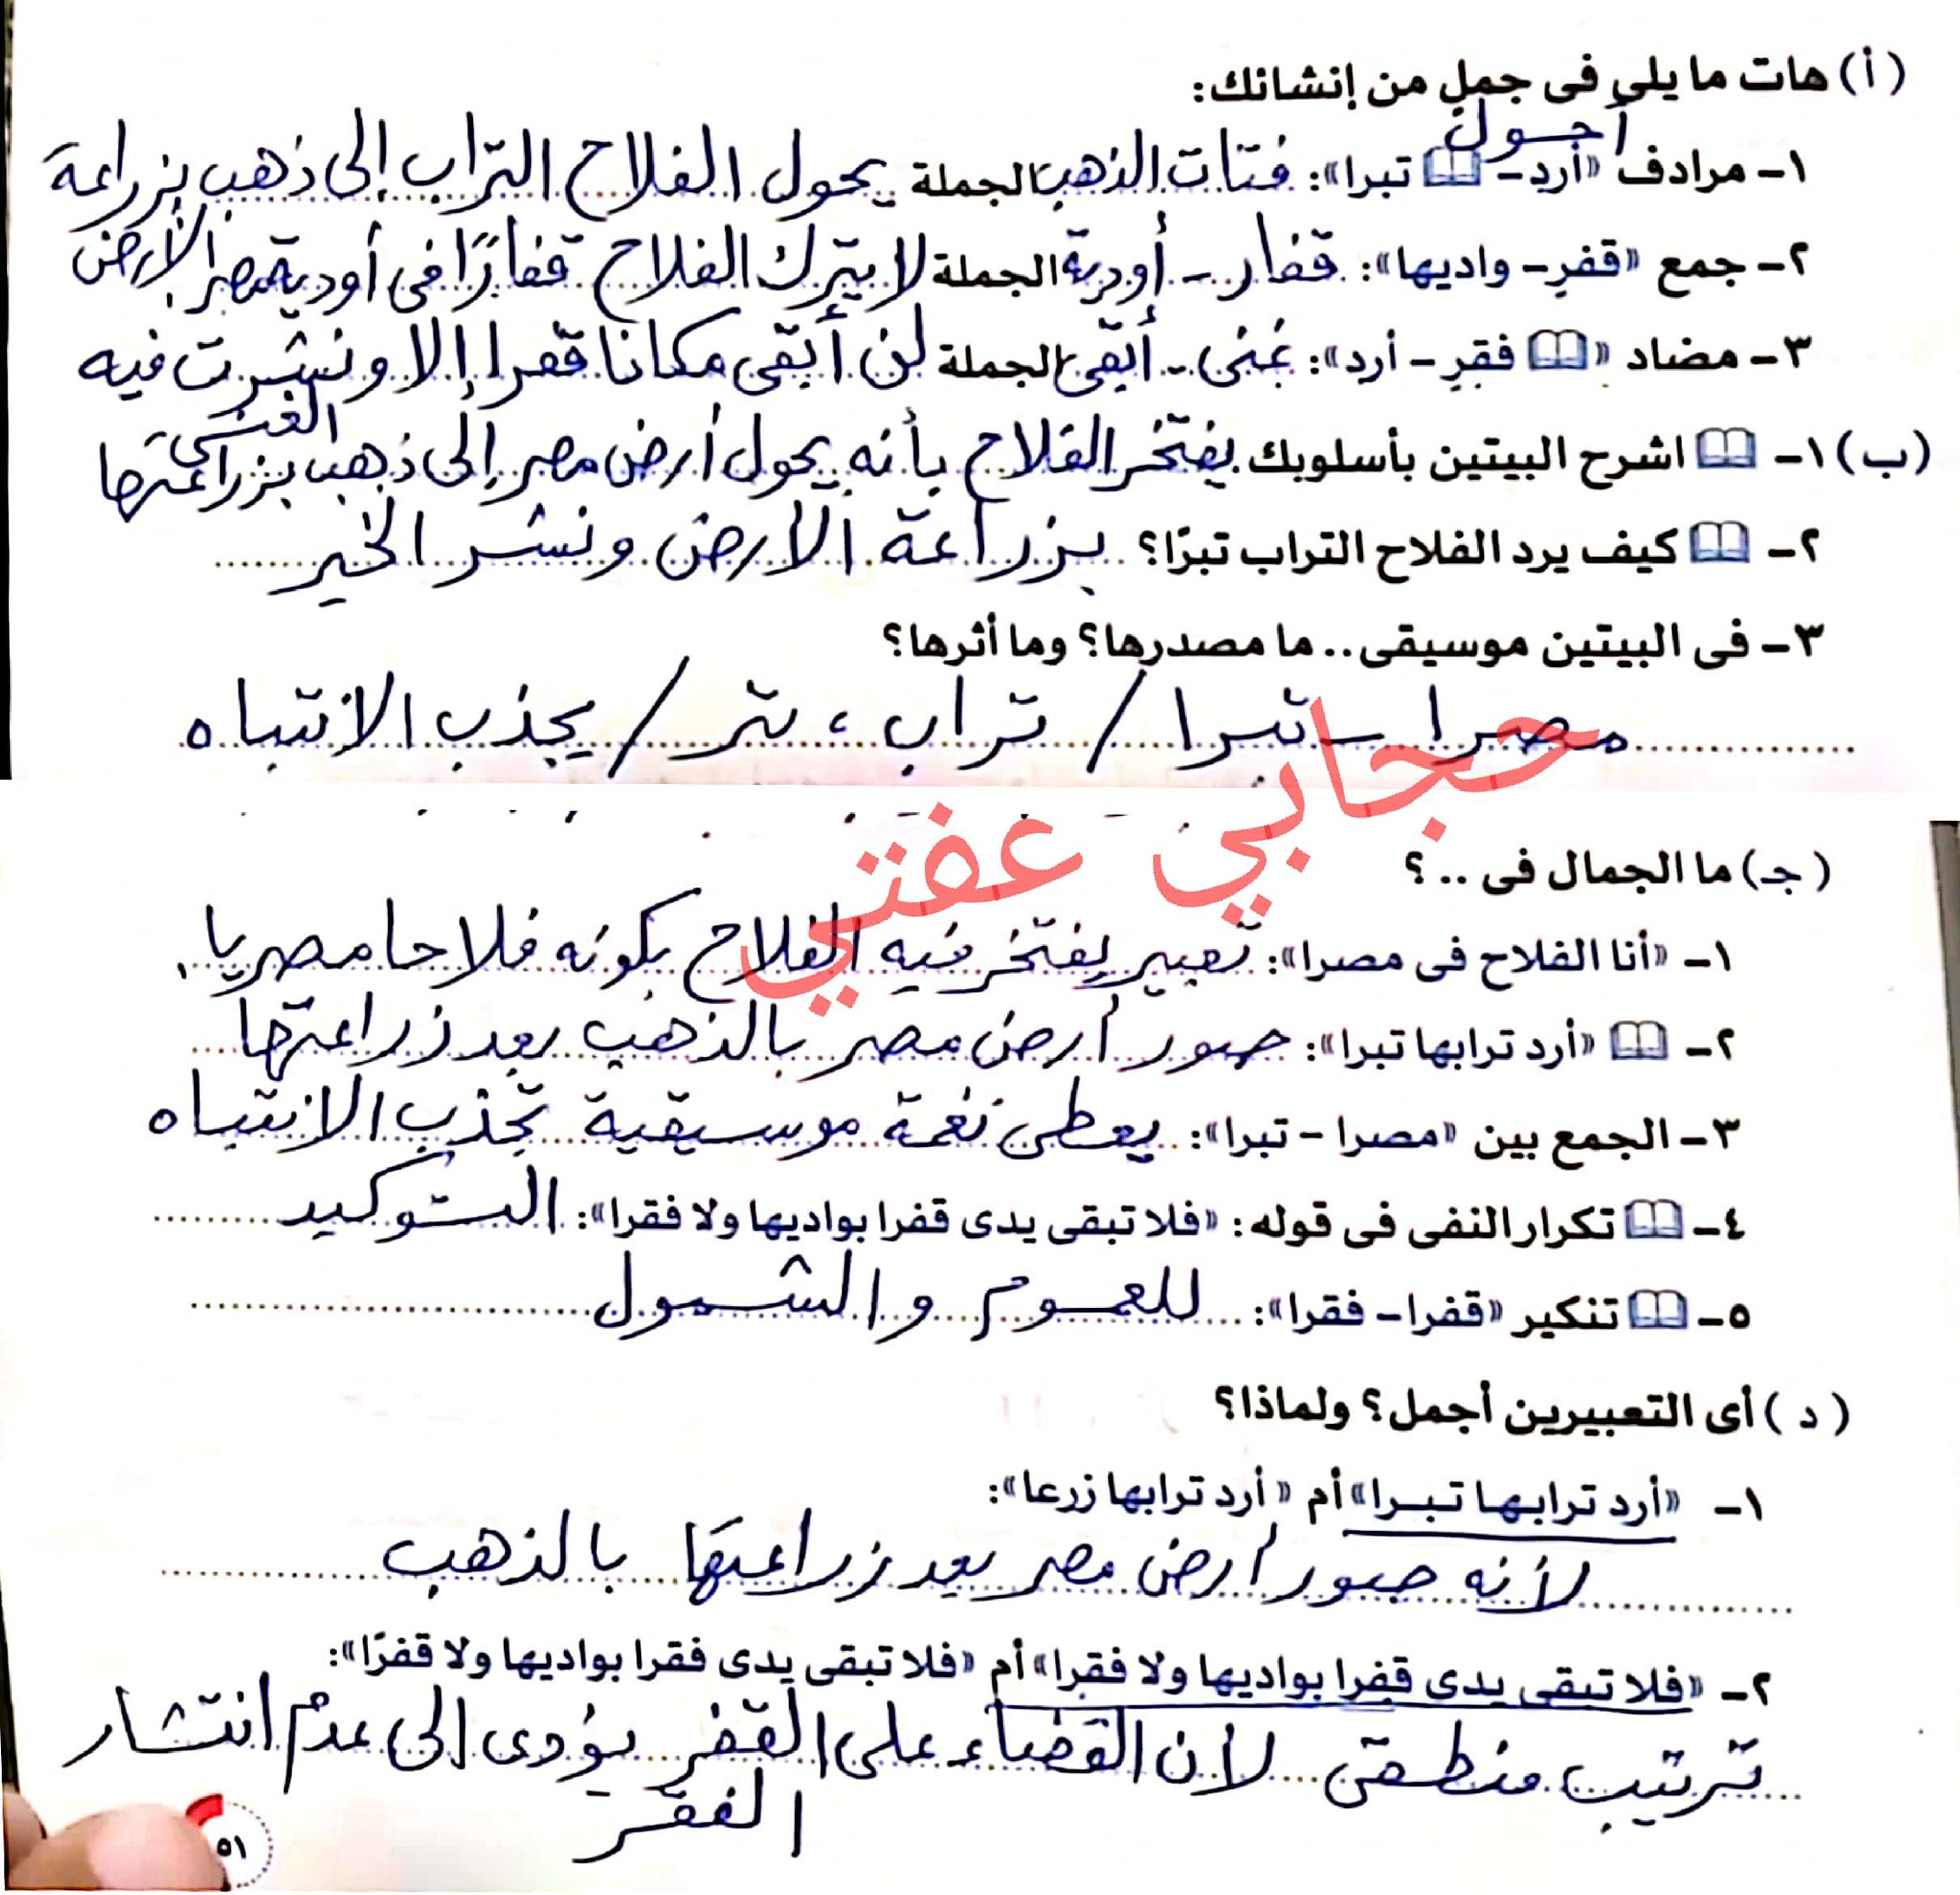 (أ) هات ما يلى فى جملٍ من إنشائك:
أحول
١- مرادف «أرد- تبرا»: فتات الذهب الجملة يحول الفلاح التراب إلى ذهب بزراعة
الأرض
٢- جمع «قفرٍ- واديها»: قفار - أودية الجملة لا يترك الفلاح قفارًا فى أودية مصر.
٣- مضاد «فقرٍ - أرد»: غنى - أبقى الجملة لن أبقى مكانا قفرا إلا ونشرت فيه
الغنى
(ب) ١- اشرح البيتين بأسلوبك يفتخر الفلاح بأنه يحول أرض مصر إلى ذهب بزراعتها
٢- كيف يرد الفلاح التراب تبرًا؟ بزراعة الأرض ونشر الخير
٣- فى البيتين موسيقى.. ما مصدرها؟ وما أثرها؟
مصرا - تبرا / تراب ، تبر / يجذب الانتباه
حجابي عفتي
(جـ) ما الجمال فى .. ؟
١- «أنا الفلاح فى مصرا»: تعبير يفتخر فيه الفلاح بكونه فلاحا مصريا.
٢- «أرد ترابها تبرا»: صور أرض مصر بالذهب بعد زراعتها
٣- الجمع بين «مصرا - تبرا»: يعطى نغمة موسيقية تجذب الانتباه
٤- تكرار النفى فى قوله: «فلا تبقى يدى قفرا بواديها ولا فقرا»: التوكيد
٥- تنكير «قفرا- فقرا»: للعموم والشمول
(د) أى التعبيرين أجمل؟ ولماذا؟
١- «أرد ترابها تبرا» أم «أرد ترابها زرعا»:
لأنه صور أرض مصر بعد زراعتها بالذهب
٢- «فلا تبقى يدى قفرا بواديها ولا فقرا» أم «فلا تبقى يدى فقرا بواديها ولا قفرًا»:
ترتيب منطقى لأن القضاء على القفر يؤدى إلى عدم انتشار
الفقر
٥١